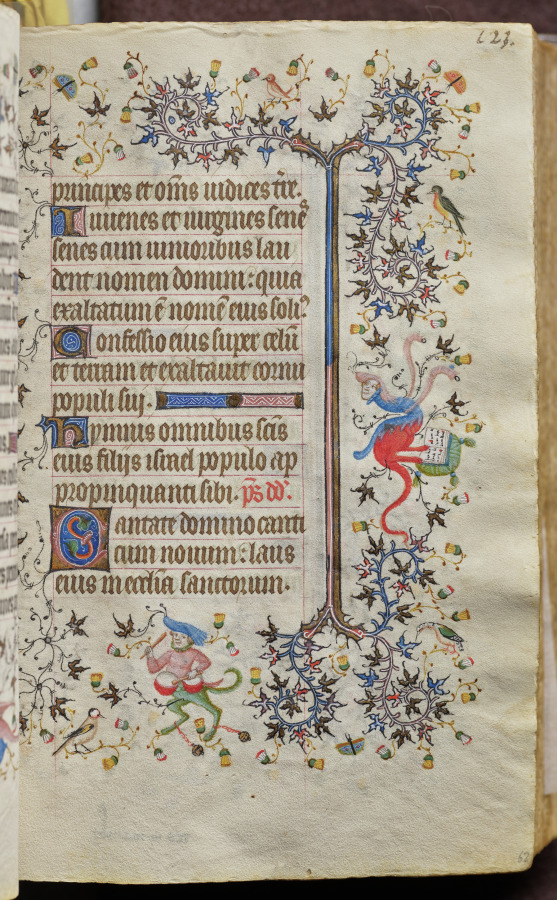 123.
principes et om̄s iudices t̄re.
Iuuenes et uirgines senē
senes cum iunioribus lau
dent nomen domini: quia
exaltatum ē nomē eius soliꝰ
Confessio eius super celū
et terram et exaltauit cornu
populi sui.
Hymnus omnibus sc̄is
eius filijs israel populo ap
propinquanti sibi. p̄s dd̄.
Cantate domino canti
cum nouum: laus
eius in eccl̄ia sanctorum.